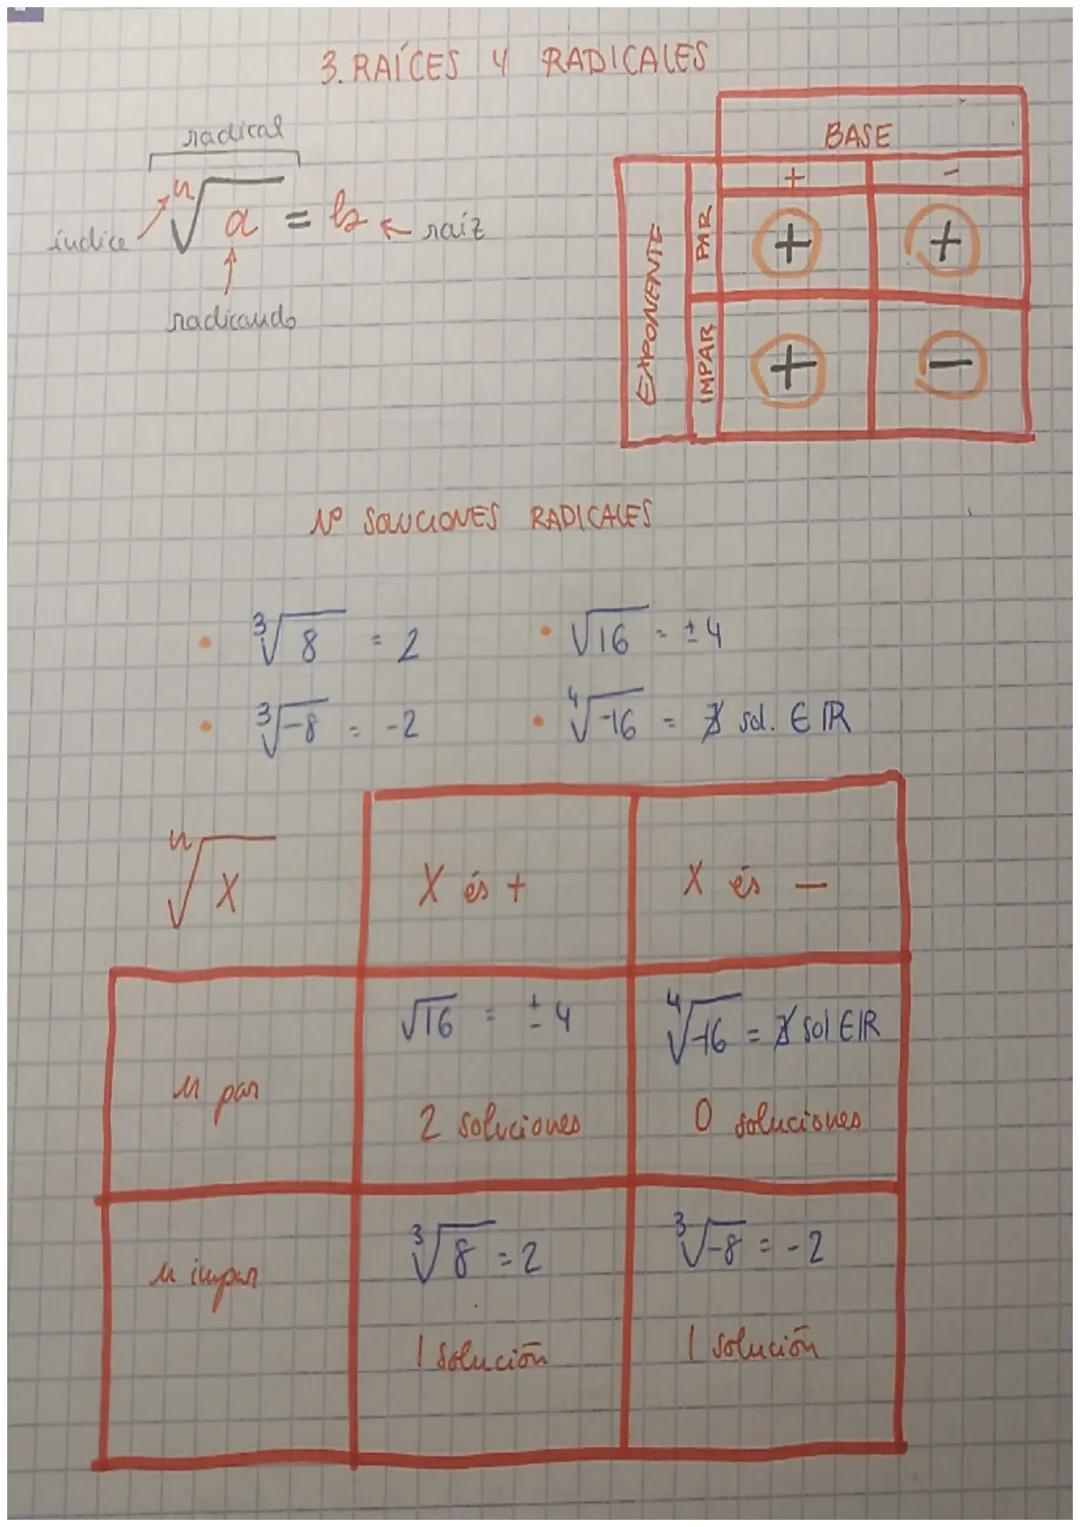 3. RAÍCES Y RADICALES
radical
n√a = b ← raíz
índice
radicando
BASE
+ -
EXPONENTE
PAR + +
IMPAR + -
Nº SOLUCIONES RADICALES
• ³√8 = 2
• √16 = ±4
• ³√-8 = -2
• ⁴√-16 = ∄ sol. ∈ ℝ
ⁿ√X
X és +
X és -
n par
√16 = ±4
2 soluciones
⁴√-16 = ∄ sol ∈ ℝ
0 soluciones
n impar
³√8 = 2
1 solución
³√-8 = -2
1 solución